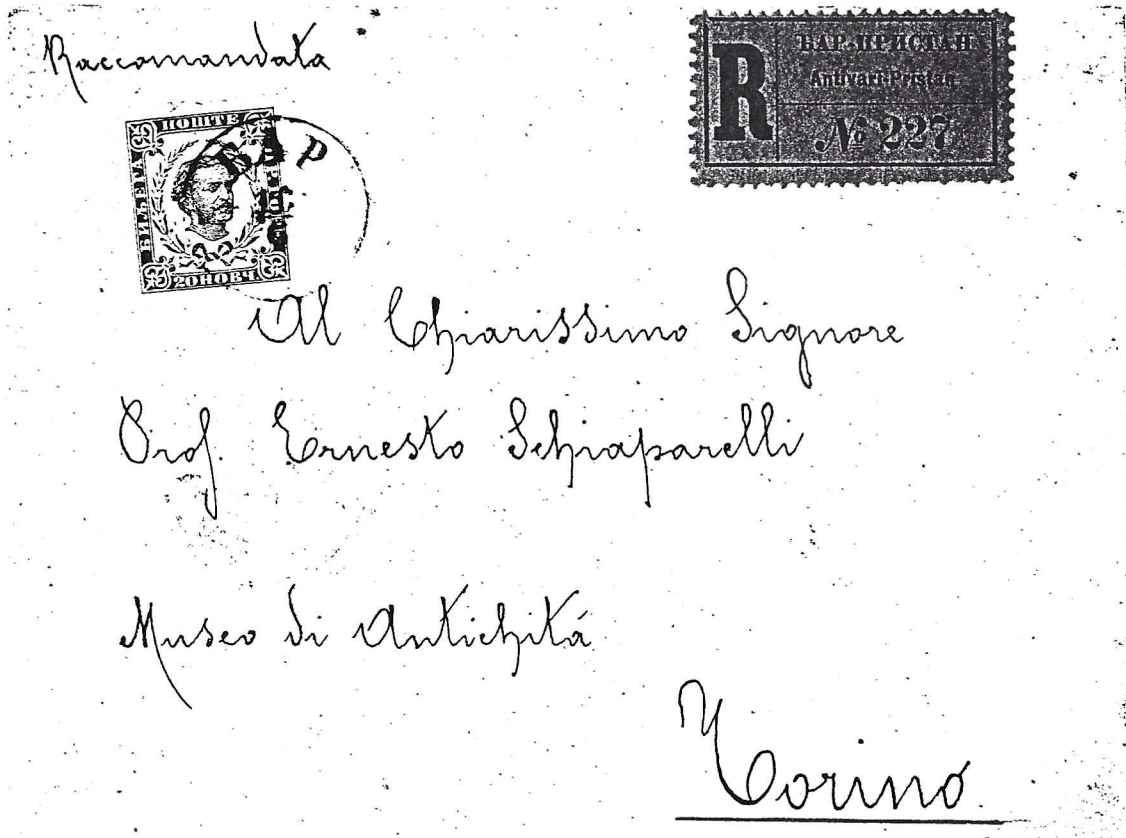 Raccomandata
БАР-ПРИСТАН
Antivari-Pristan
R
№ 227
ПОШТЕ
БИЉЕГА
20 НОВЧ.
БАР
Al Chiarissimo Signore
Prof. Ernesto Schiaparelli
Museo di Antichitá
Torino